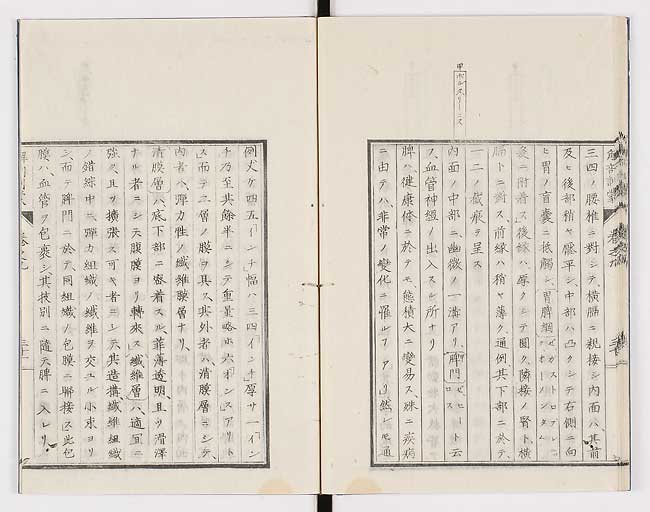 三四ノ腰椎ニ對シテ、横膈ニ親接シ内面ハ其前
及ヒ後部稍ヤ扁平シ、中部ハ凸クシテ右側ニ向
ヒ胃ノ盲嚢ニ抵觸シ、胃脾網
嚢ニ附着ス後縁ハ厚クシテ圓ク隣接ノ腎ト横
膈トニ對ス前縁ハ稍ヤ薄ク、通例其下部ニ於テ、
一二ノ截痕ヲ呈ス
内面ノ中部ニ幽微ノ一溝アリ、脾門
フ、血管神經ノ出入スル所ナリ
脾ハ健康体ニ於テモ態積大ニ變易ス、殊ニ疾病
ニ由テハ非常ノ變化ニ罹ルフアリ然レ𪜈通
例丈ケ四五「インチ」幅ハ三四「インチ」厚サ一「イン
チ乃至其餘半ニシテ重量略ホ六「オンス」アリト
ス而テ二層ノ膜ヲ具ス、其外者ハ漿膜層ニシテ、
内者ハ、彈力性ノ纖維膜層ナリ、
漿膜層ハ、底下部ニ密着スル、菲薄透明、且ツ滑澤
ナル者ニシテ腹膜ヨリ轉來ス纖維層ハ、適宜ニ
強ク、且ツ擴張ス可キ者ニシテ其造構纖維組織
ノ錯綜中ニ、彈力組織ノ纖維ヲ交ユル小束ヨリ
シ、而テ脾門ニ於テ、同組織ノ包膜ニ聯接ス此包
膜ハ、血管ヲ包裹シ其技別ニ隨テ脾ニ入レリ、